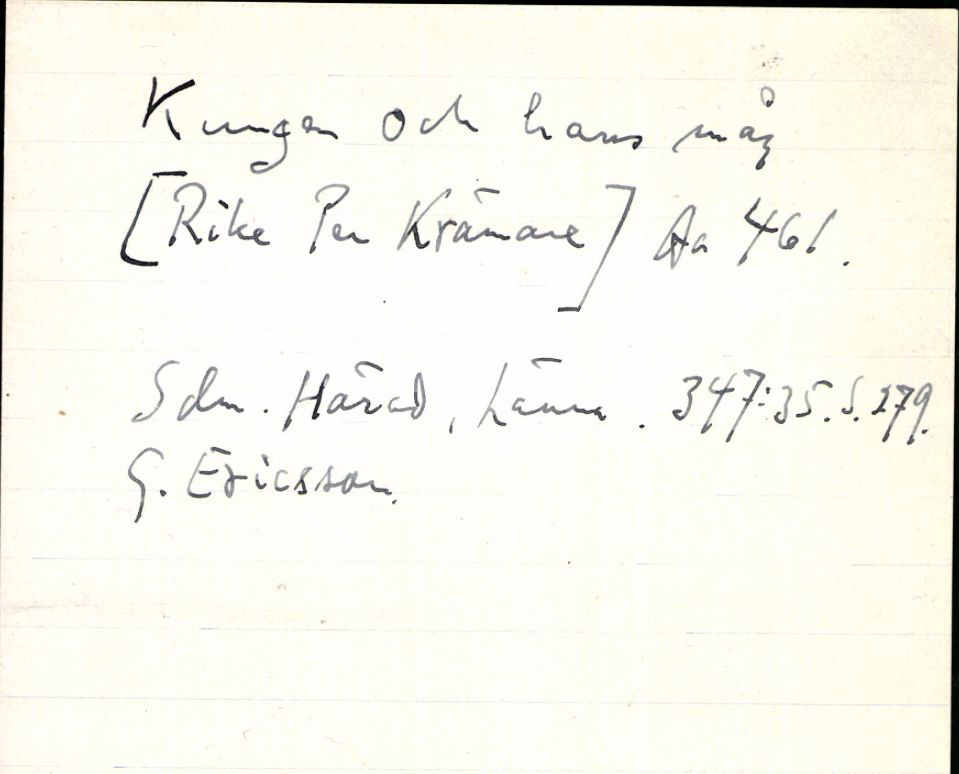 Kungen och hans måg
[Rike Per Krämare] Aa 461.
Sdm. Härad, Länna. 347:35. S. 279.
G. Ericsson.